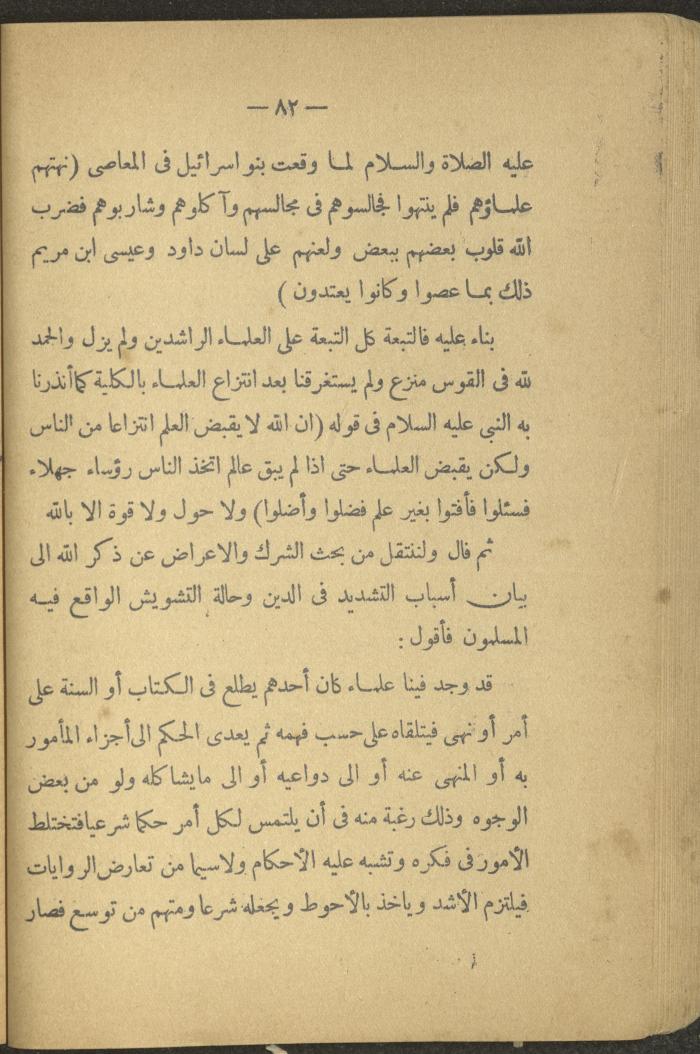 — ٨٢ —
عليه الصلاة والسلام لما وقعت بنو اسرائيل فى المعاصى (نهتهم
علماؤهم فلم ينتهوا فجالسوهم فى مجالسهم وآكلوهم وشاربوهم فضرب
الله قلوب بعضهم ببعض ولعنهم على لسان داود وعيسى ابن مريم
ذلك بما عصوا وكانوا يعتدون )
بناء عليه فالتبعة كل التبعة على العلماء الراشدين ولم يزل والحمد
لله فى القوس منزع ولم يستغرقنا بعد انتزاع العلماء بالكلية كما أنذرنا
به النبى عليه السلام فى قوله (ان الله لا يقبض العلم انتزاعا من الناس
ولكن يقبض العلماء حتى اذا لم يبق عالم اتخذ الناس رؤساء جهلاء
فسئلوا فأفتوا بغير علم فضلوا وأضلوا) ولا حول ولا قوة الا بالله
ثم قال ولننتقل من بحث الشرك والاعراض عن ذكر الله الى
بيان أسباب التشديد فى الدين وحالة التشويش الواقع فيه
المسلمون فأقول :
قد وجد فينا علماء كان أحدهم يطلع فى الكتاب أو السنة على
أمر أو نهى فيتلقاه على حسب فهمه ثم يعدى الحكم الى أجزاء المأمور
به أو المنهى عنه أو الى دواعيه أو الى مايشاكله ولو من بعض
الوجوه وذلك رغبة منه فى أن يلتمس لكل أمر حكما شرعيا فتختلط
الأمور فى فكره وتشبه عليه الأحكام ولاسيما من تعارض الروايات
فيلتزم الأشد وياخذ بالأحوط ويجعله شرعا ومنهم من توسع فصار